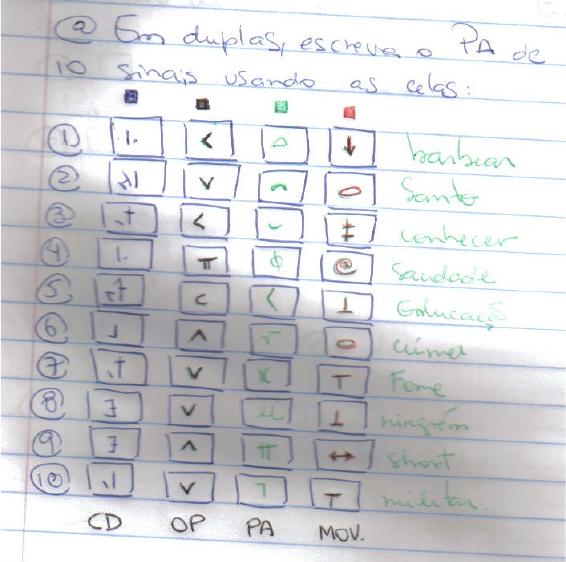 a Em duplas, escreva o PA de
10 sinais usando as celas:
1 barbear
2 Santo
3 conhecer
4 Saudade
5 Educação
6 ciúmes
7 Fome
8 ninguém
9 short
10 militar.
CD OP PA MOV.